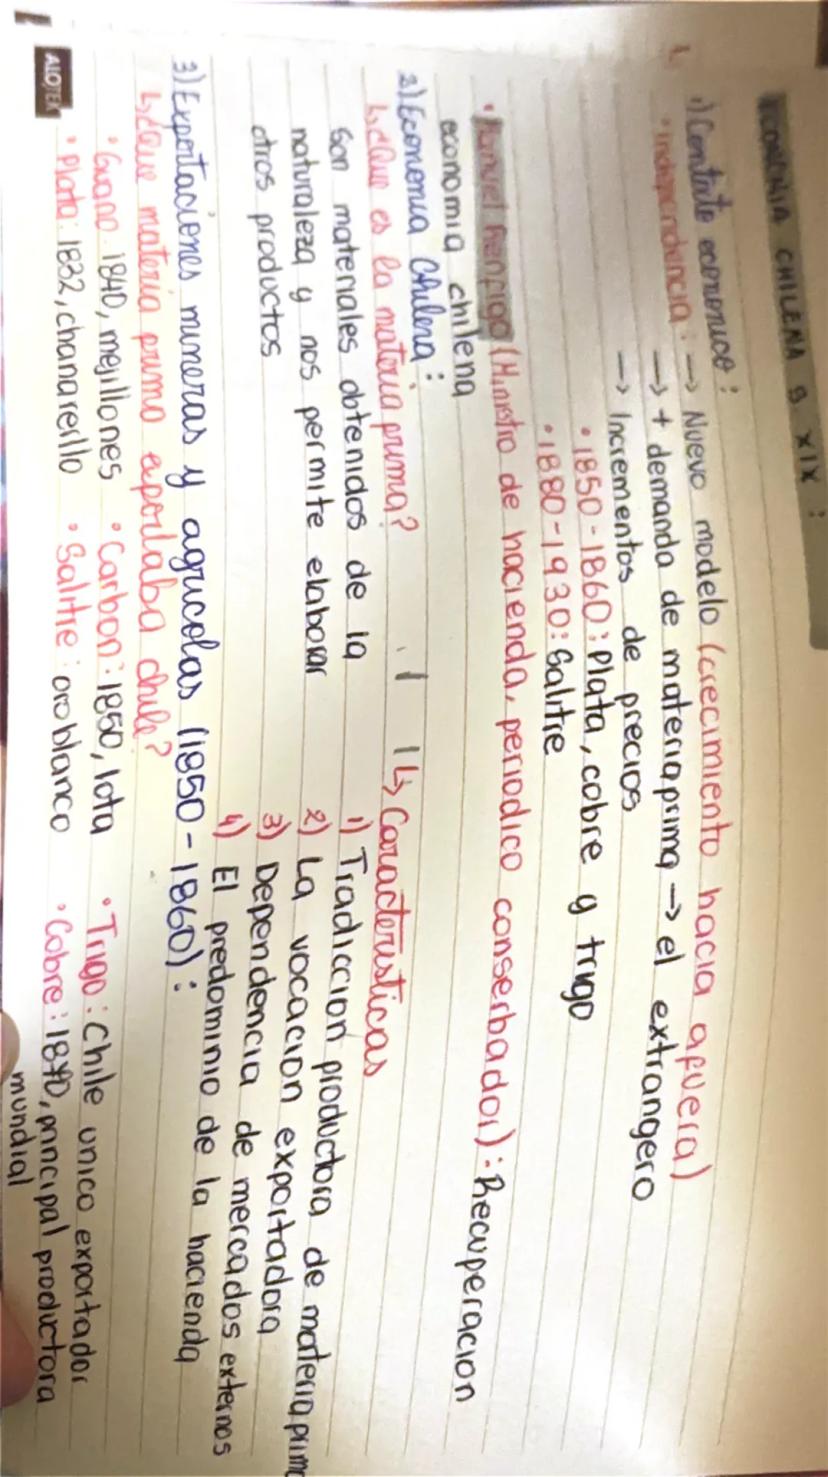 ECONOMIA CHILENA S. XIX :
1) Contexto economico :
• independencia : → Nuevo modelo (crecimiento hacia afuera)
→ + demanda de materia prima → el extrangero
→ Incrementos de precios
• 1850-1860: Plata, cobre y trigo
• 1880-1930: Salitre
• Manuel Rengifo (Ministro de hacienda, periodico conserbador) : Recuperacion
economia chilena
2) Economia Chilena :
↳ ¿Que es la materia prima?
Son materiales obtenidos de la
naturaleza y nos permite elaborar
otros productos
↳ Caracteristicas
1) Tradiccion productora de materia prima
2) La vocacion exportadora
3) Dependencia de mercados externos
4) El predominio de la hacienda
3) Exportaciones mineras y agricolas (1850-1860) :
↳ ¿Que materia prima exportaba chile?
• Guano: 1840, mejillones • Carbon: 1850, lota • Trigo: Chile unico exportador
• Plata: 1832, chanarcillo • Salitre: oro blanco • Cobre: 1840, principal productora
mundial
ALOTEK